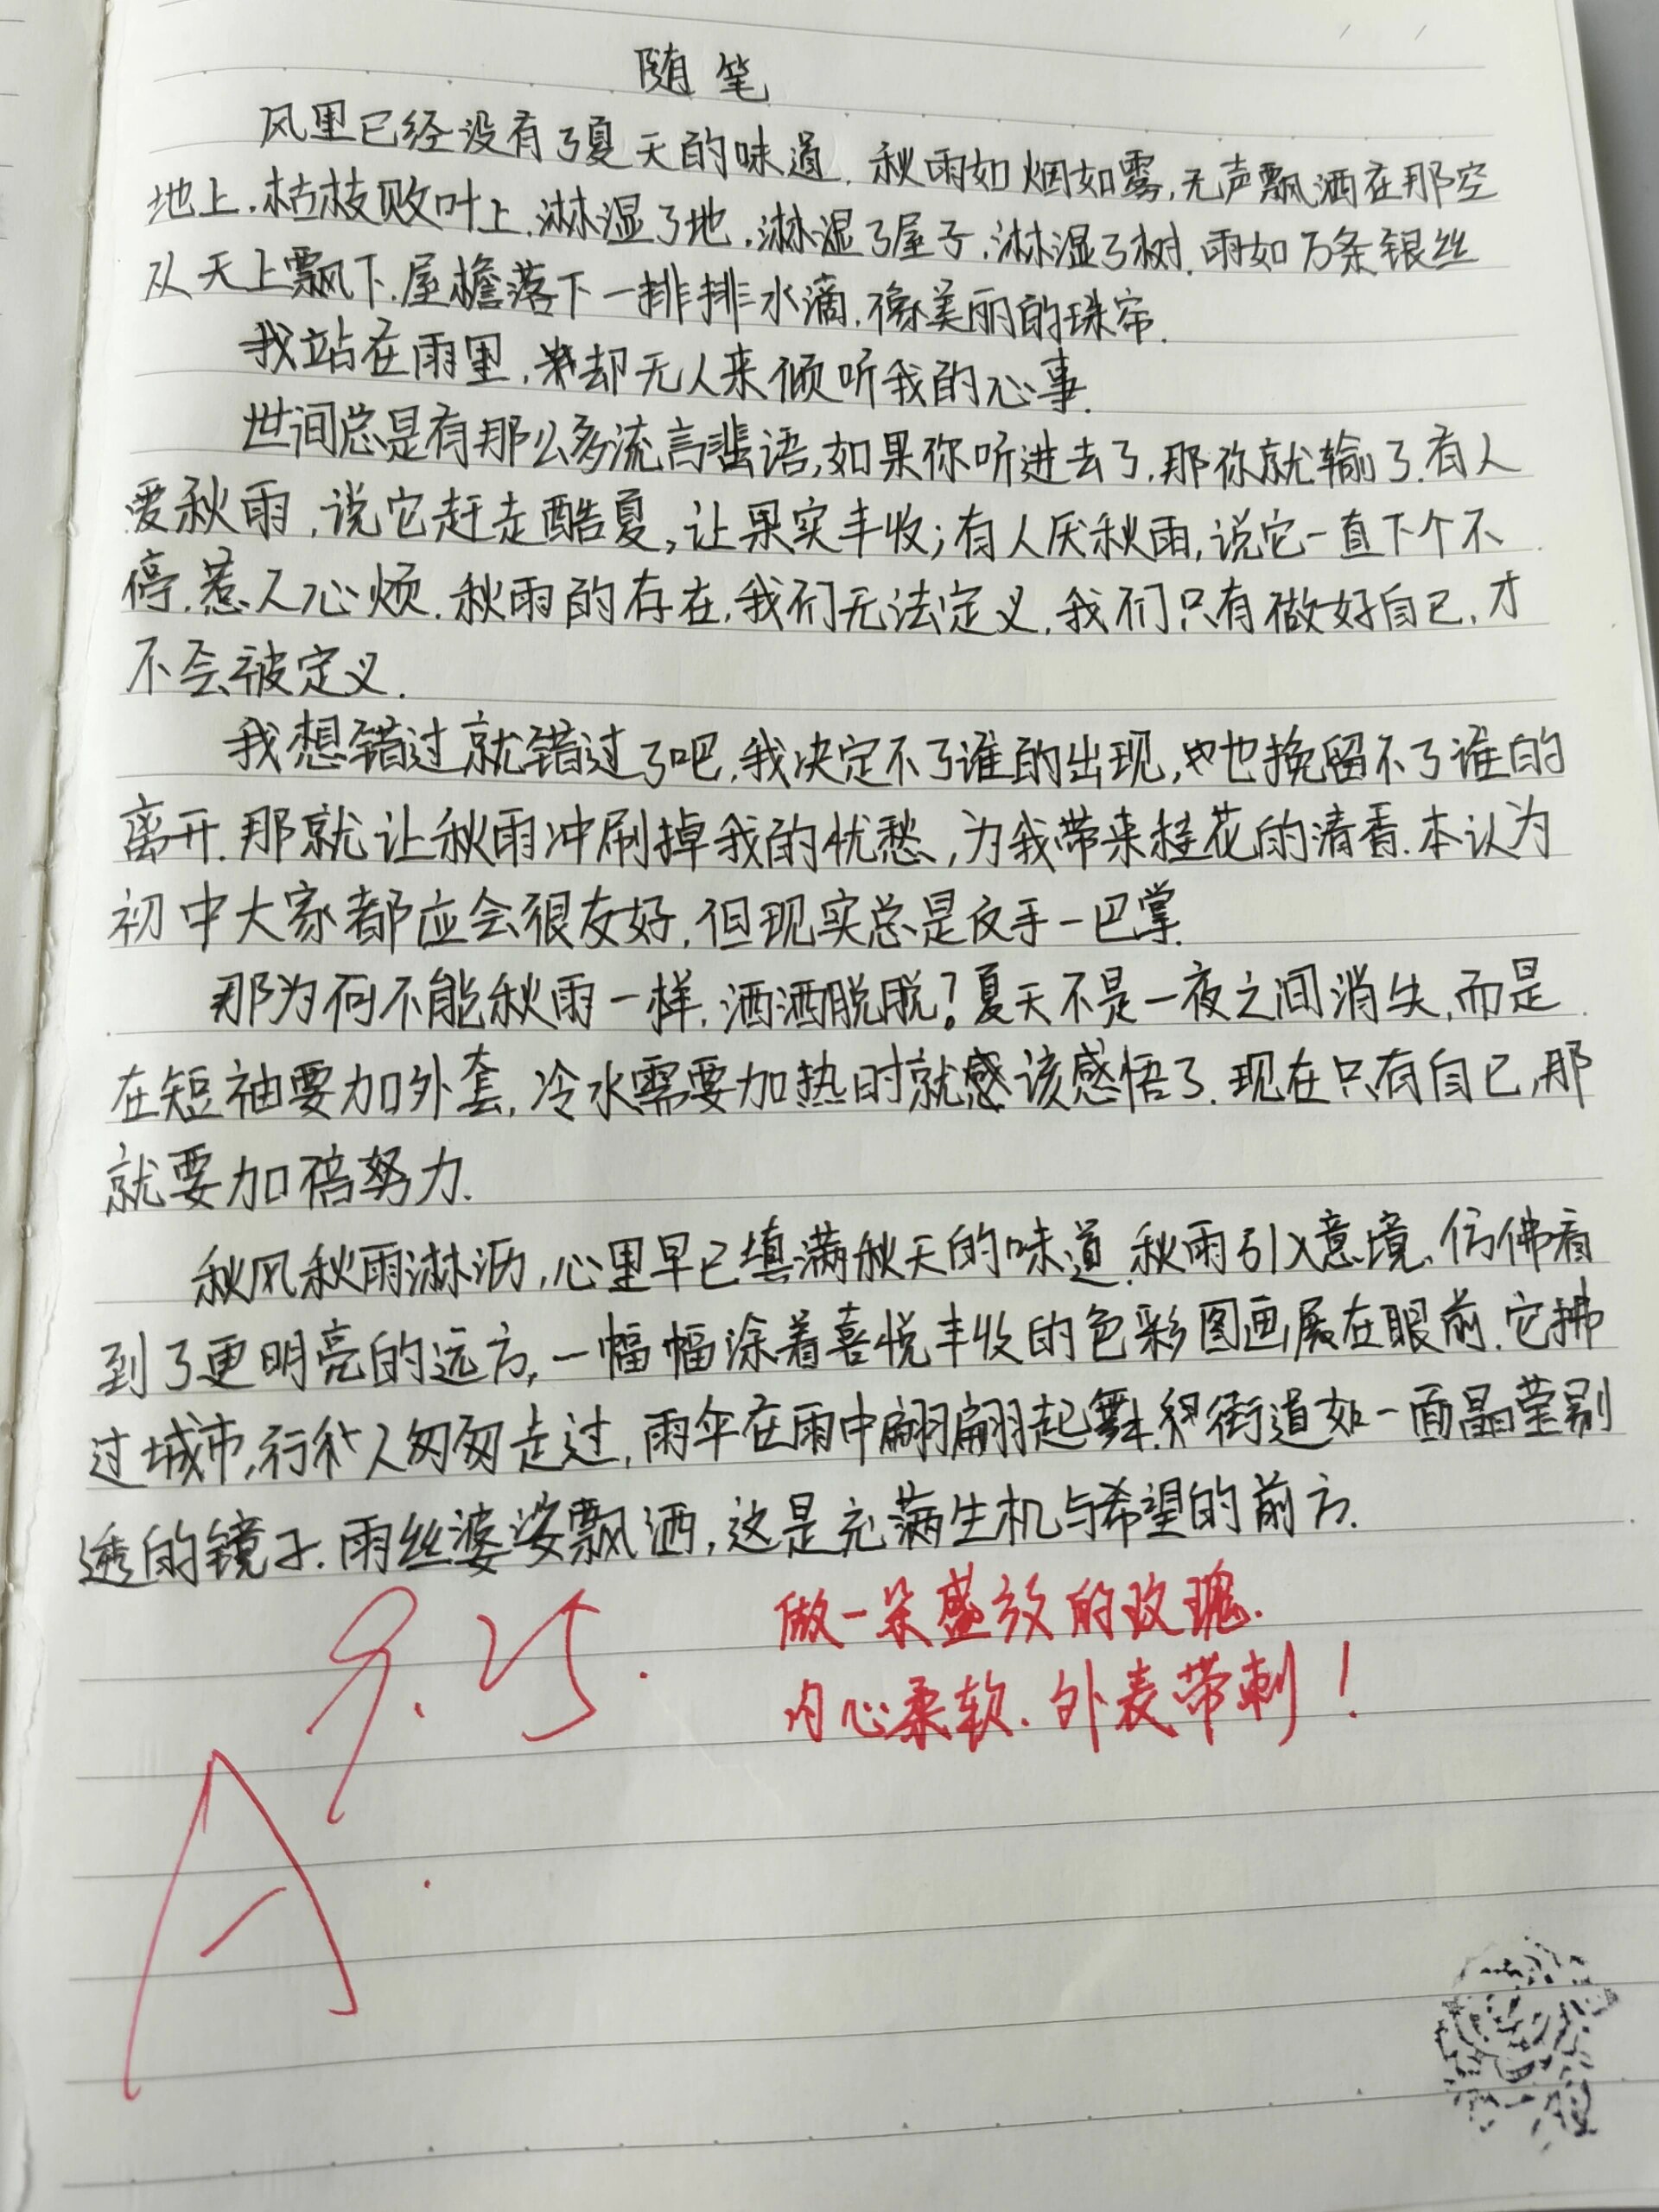 随笔
风里已经没有了夏天的味道.秋雨如烟如雾,无声飘洒在那空
地上.枯枝败叶上.淋湿了地.淋湿了屋子.淋湿了树.雨如万条银丝
从天上飘下.屋檐落下一排排水滴.像美丽的珠帘.
我站在雨里,却无人来倾听我的心事.
世间总是有那么多流言蜚语,如果你听进去了.那你就输了.有人
爱秋雨,说它赶走酷夏,让果实丰收;有人厌秋雨,说它一直下个不
停.惹人心烦.秋雨的存在,我们无法定义.我们只有做好自己.才
不会被定义.
我想错过就错过了吧,我决定不了谁的出现,也挽留不了谁的
离开.那就让秋雨冲刷掉我的忧愁,为我带来桂花的清香.本认为
初中大家都应会很友好,但现实总是反手一巴掌.
那为何不能秋雨一样.洒洒脱脱?夏天不是一夜之间消失,而是
在短袖要加外套,冷水需要加热时就该感悟了.现在只有自己,那
就要加倍努力.
秋风秋雨淋沥,心里早已填满秋天的味道.秋雨引入意境,仿佛看
到了更明亮的远方,一幅幅涂着喜悦丰收的色彩图画展在眼前.它拂
过城市,行人匆匆走过,雨伞在雨中翩翩起舞.街道如一面晶莹剔
透的镜子.雨丝婆娑飘洒,这是充满生机与希望的前方.
9.25.
做一朵盛放的玫瑰.
内心柔软.外表带刺!
A.